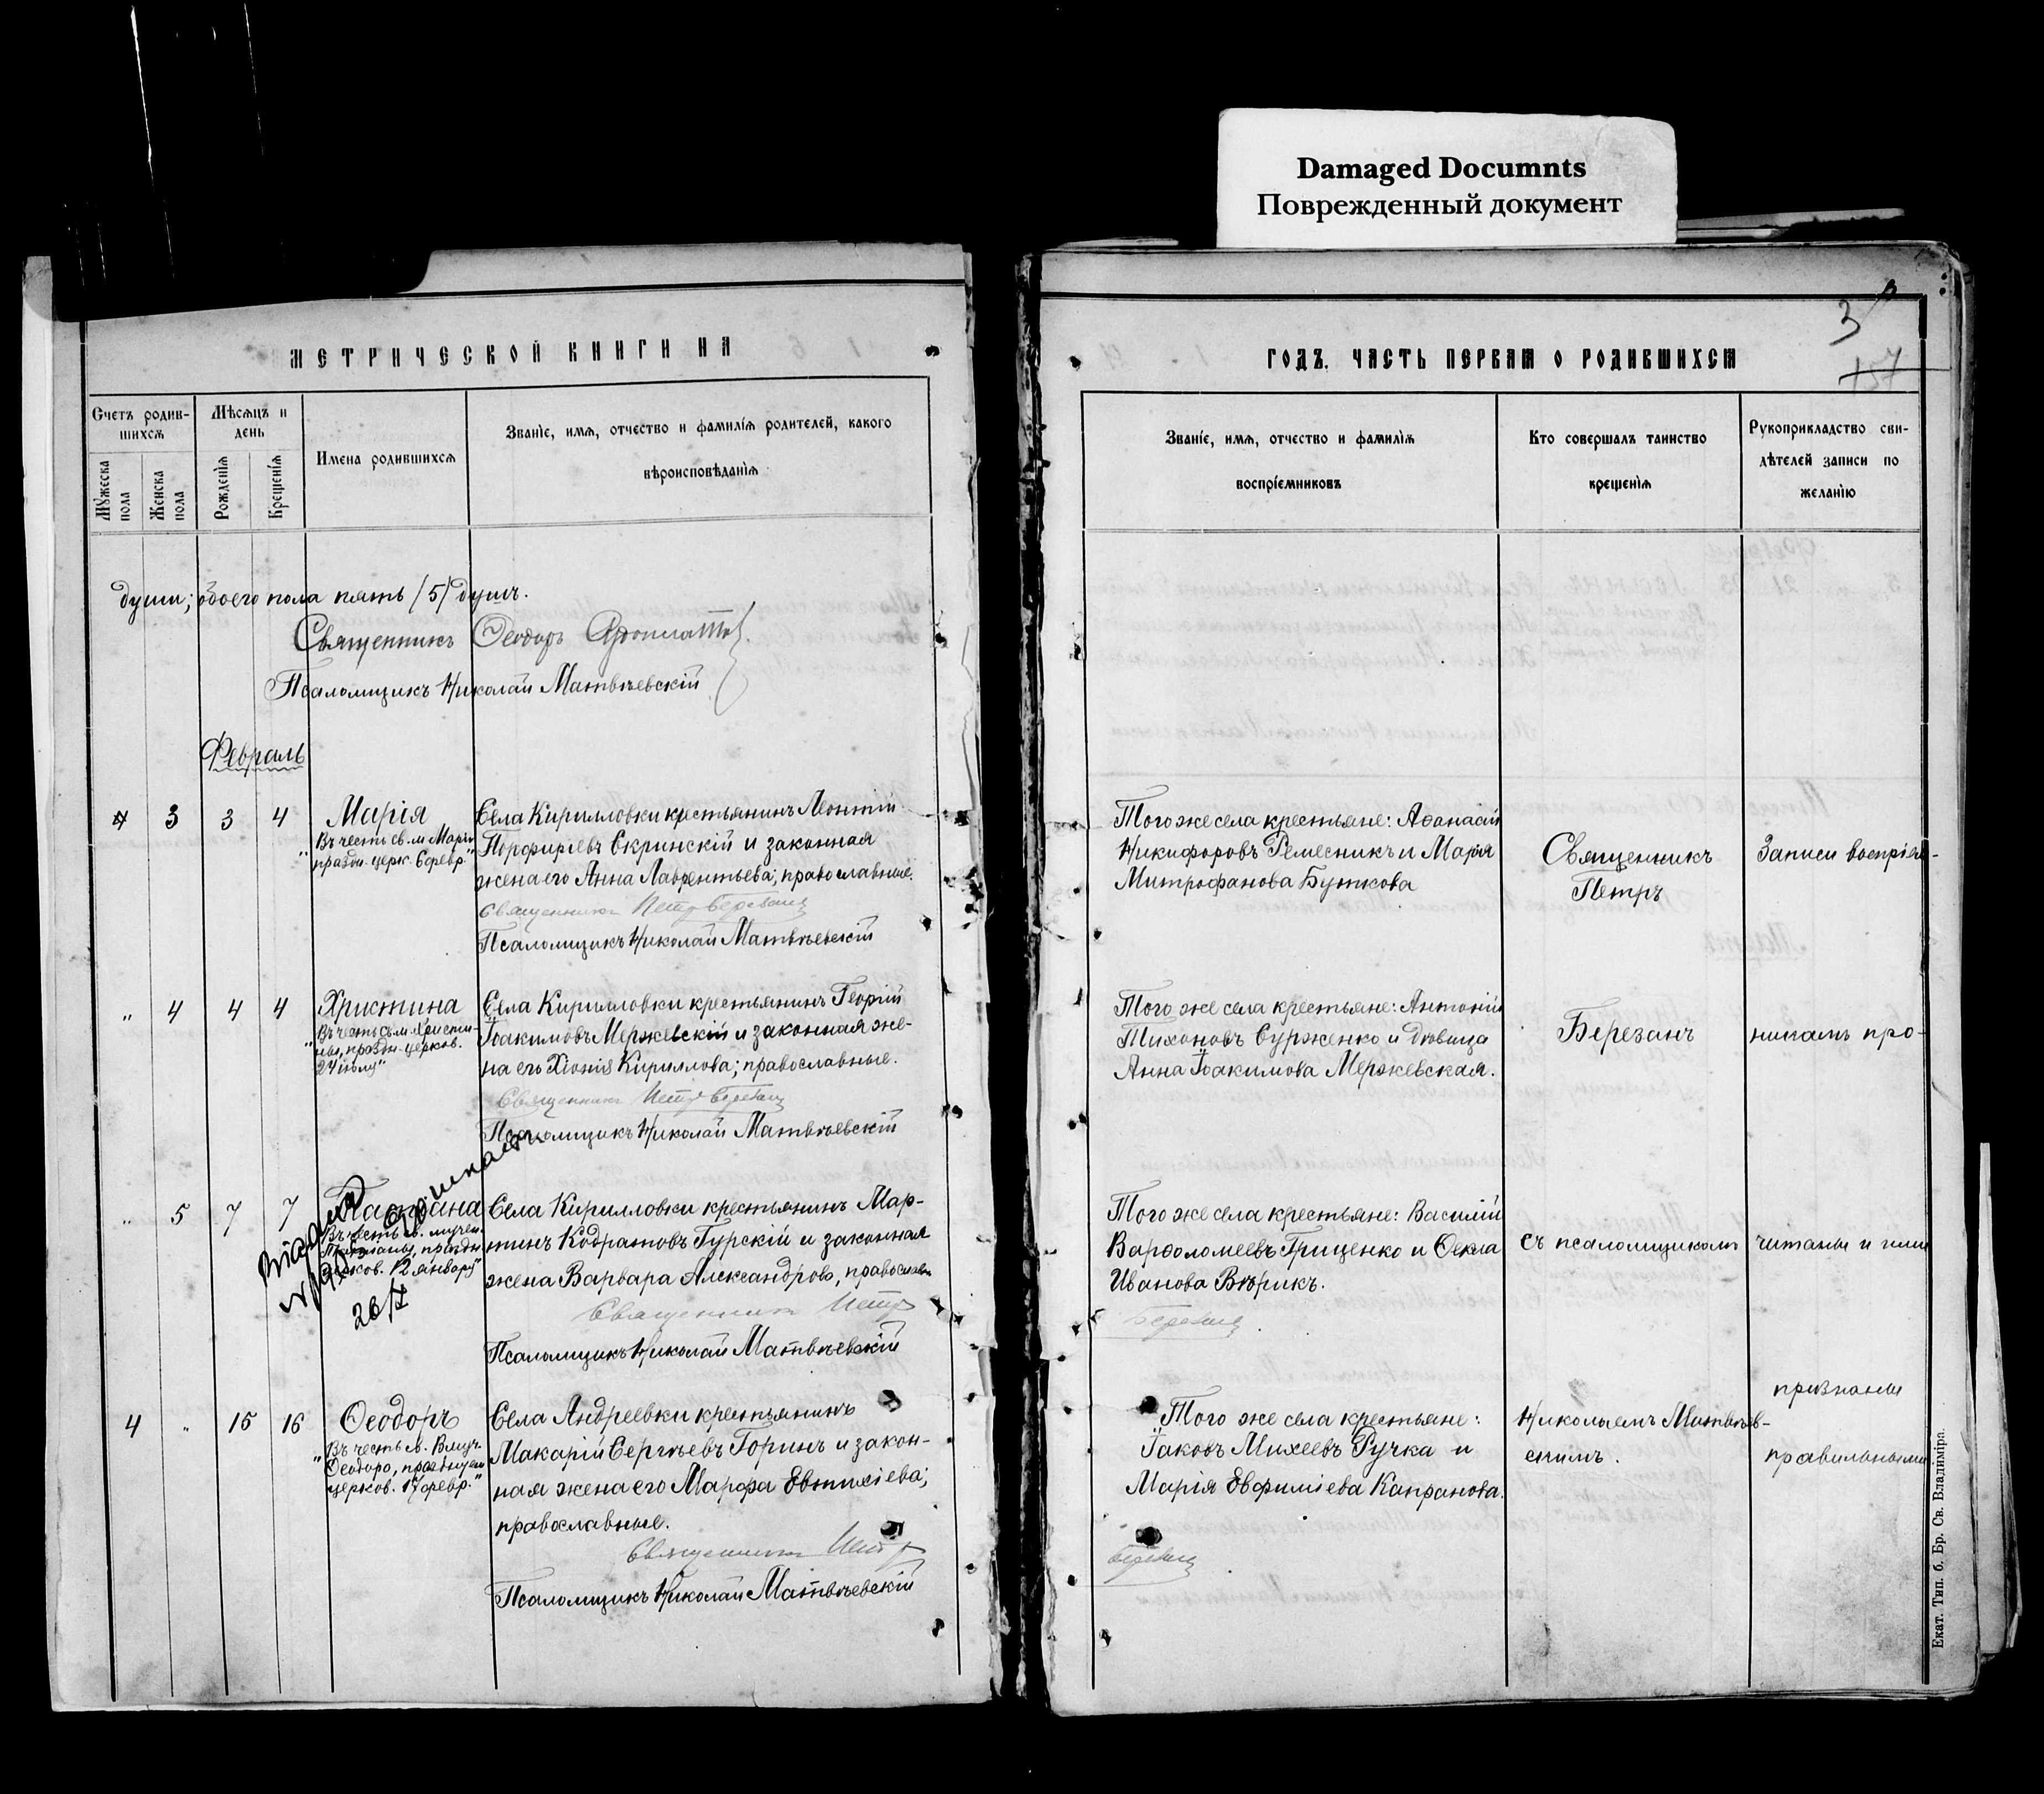 Damaged Documnts
Поврежденный документ
МЕТРИЧЕСКОЙ КНИГИ НА
Счетъ родив-
шихся
Мѣсяцъ и
день
Мужеска
пола
Женска
пола
Рожденія
Крещенія
Имена родившихся
Званіе, имя, отчество и фамилія родителей, какого
вѣроисповѣданія
души; обоего пола пять /5/ душъ.
Священникъ Ѳеодоръ
Псаломщикъ Николай Матвѣевскій
Февраль
3 3 4 Марія
"Въ честь св. м. Маріи
праздн. церк. 6 февр."
Села Кирилловки крестьянинъ Леонтій
Порфиріевъ Скринскій и законная
жена его Анна Лаврентьева; православные.
Священникъ Петръ Березанъ
Псаломщикъ Николай Матвѣевскій
" 4 4 4 Христина
"Въ честь св. м. Христи-
ны, праздн. церков.
24 іюля"
Села Кирилловки крестьянинъ Георгій
Іоакимовъ Мержевскій и законная же-
на его Хіонія Кириллова; православные.
Священникъ Петръ Березанъ
Псаломщикъ Николай Матвѣевскій
" 5 7 7 Татіана
"Въ честь св. мучен.
Татіаны, праздн.
церков. 12 января"
26/
Села Кирилловки крестьянинъ Мар-
тинъ Кодратовъ Гурскій и законная
жена Варвара Александрова, православн
Священникъ Петръ
Псаломщикъ Николай Матвѣевскій
4 " 15 16 Ѳеодоръ
"Въ честь св. Вмуч.
Ѳеодора, празднуем
церков. 17 февр."
Села Андреевки крестьянинъ
Макарій Сергѣевъ Горинъ и закон-
ная жена его Марфа Евтихіева;
православные.
Священникъ Петръ
Псаломщикъ Николай Матвѣевскій
3
157
ГОДЪ. ЧАСТЬ ПЕРВАЯ О РОДИВШИХСЯ
Званіе, имя, отчество и фамилія
воспріємниковъ
Кто совершалъ таинство
крещенія
Рукоприкладство сви-
дѣтелей записи по
желанію
Того же села крестьяне: Аѳанасій
Никифоровъ Ремесникъ и Марія
Митрофанова Буткова
Священникъ
Петръ
Записи воспріем-
Того же села крестьяне: Антоній
Тихоновъ Сурженко и дѣвица
Анна Іоакимова Мержевская.
Березанъ
никамъ про-
Того же села крестьяне: Василій
Варѳоломеевъ Гриценко и Ѳекла
Иванова Вѣрикъ.
Березанъ
съ псаломщикомъ
читаны и ими
Того же села крестьяне:
Іаковъ Михеевъ Ручка и
Марія Евфиміева Капранова.
Березанъ
Николаемъ Матвѣев-
скимъ.
признаны
правильными
Екат. Тип. б. Бр. Св. Владиміра.